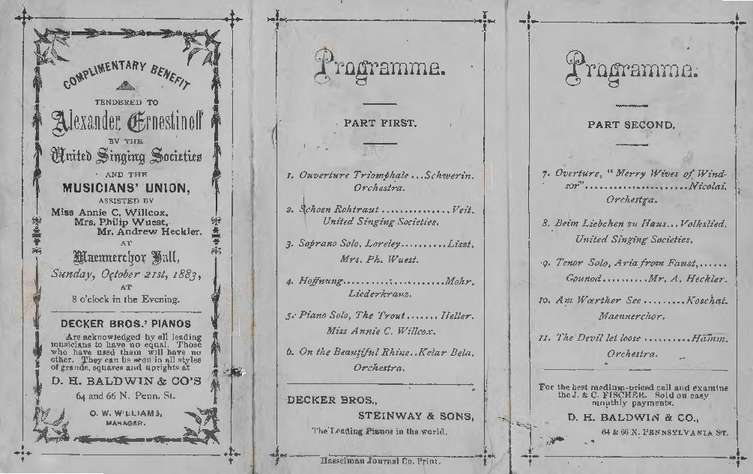 COMPLIMENTARY BENEFIT
TENDERED TO
Alexander Ernestinoff
BY THE
United Singing Societies
AND THE
MUSICIANS' UNION,
ASSISTED BY
Miss Annie C. Willcox,
Mrs. Philip Wuest,
Mr. Andrew Heckler.
AT
Maennerchor Hall,
Sunday, October 21st, 1883,
AT
8 o'clock in the Evening.
DECKER BROS.' PIANOS
Are acknowledged by all leading
musicians to have no equal. Those
who have used them will have no
other. They can be seen in all styles
of grands, squares and uprights at
D. H. BALDWIN & CO'S
64 and 66 N. Penn. St.
O. W. WILLIAMS,
MANAGER.
Programme.
PART FIRST.
1. Ouverture Triomphale...Schwerin.
Orchestra.
2. Schoen Rohtraut................Veit.
United Singing Societies.
3. Soprano Solo, Loreley...........Liszt.
Mrs. Ph. Wuest.
4. Hoffnung......................Mohr.
Liederkranz.
5. Piano Solo, The Trout.......Heller.
Miss Annie C. Willcox.
6. On the Beautiful Rhine..Kelar Bela.
Orchestra.
DECKER BROS.,
STEINWAY & SONS,
The Leading Pianos in the world.
Hasselman Journal Co. Print.
Programme.
PART SECOND.
7. Overture, "Merry Wives of Wind-
sor"........................Nicolai.
Orchestra.
8. Beim Liebchen zu Haus...Volkslied.
United Singing Societies.
9. Tenor Solo, Aria from Faust,......
Gounod..........Mr. A. Heckler.
10. Am Wærther See.........Koschat.
Maennerchor.
11. The Devil let loose...........Hamm.
Orchestra.
For the best medium-priced call and examine
the J. & C. FISCHER. Sold on easy
monthly payments.
D. H. BALDWIN & CO.,
64 & 66 N. PENNSYLVANIA ST.